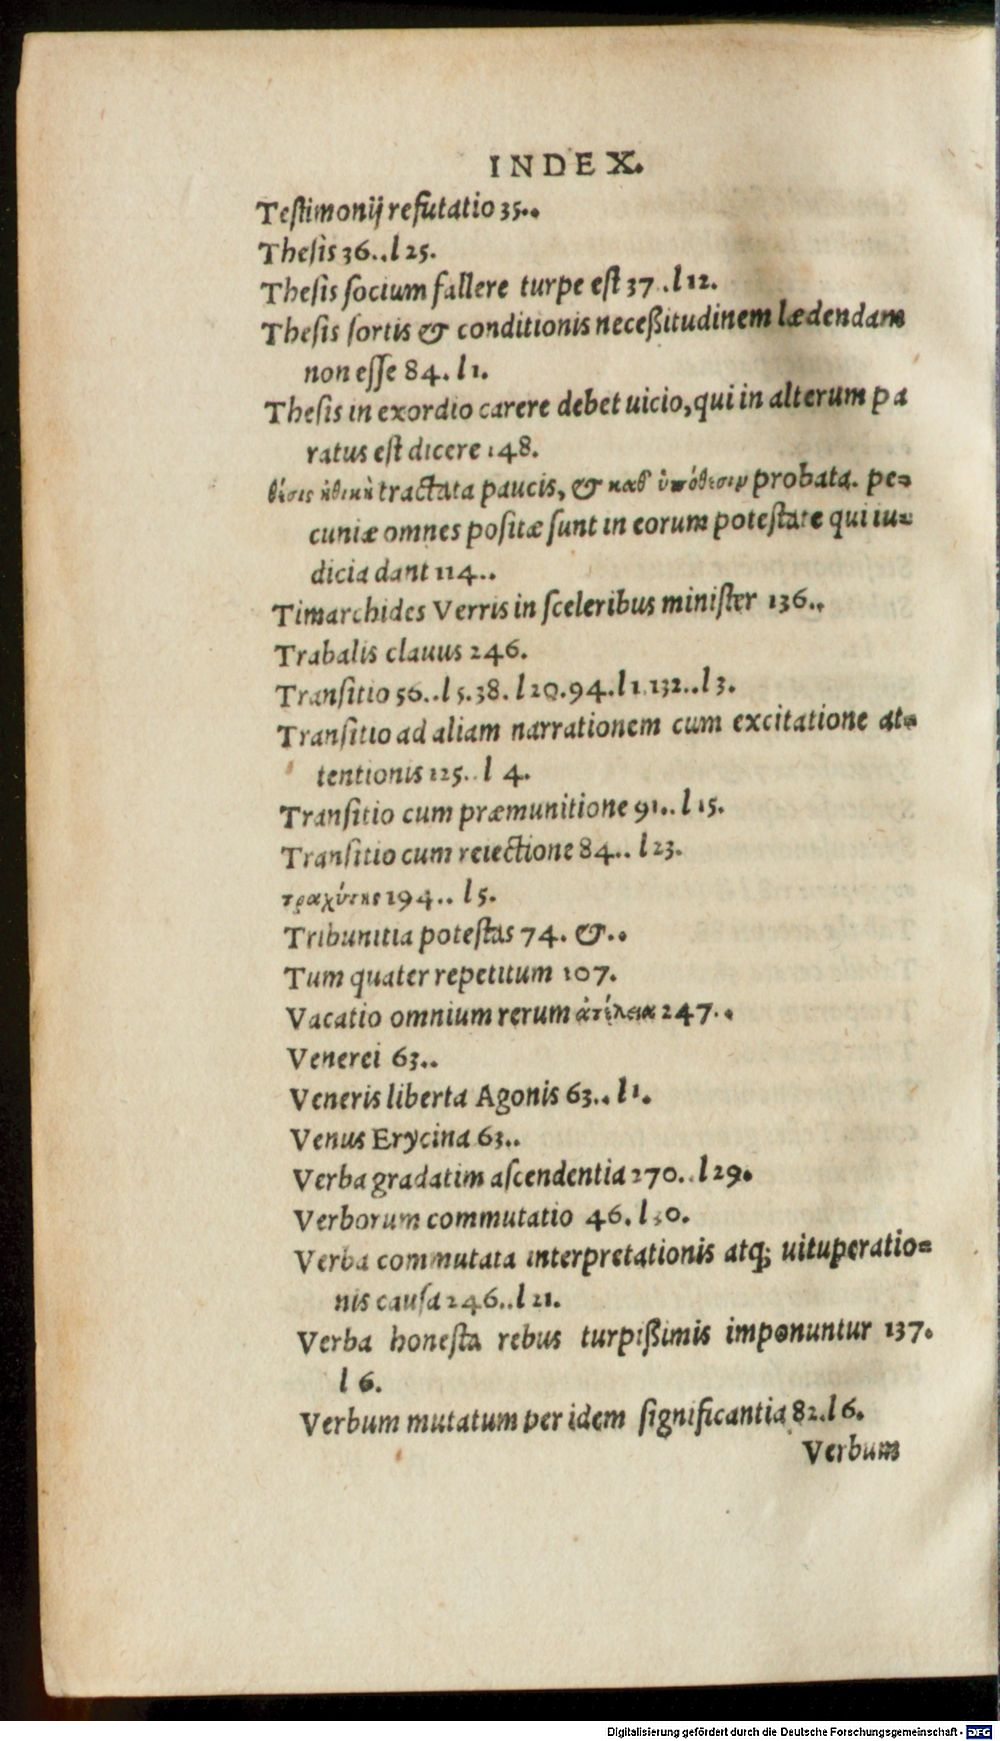 INDEX.
Teſtimonij refutatio 35..
Theſis 36..l 25.
Theſis ſocium fallere turpe eſt 37 .l 12.
Theſis ſortis & conditionis neceßitudinem lædendam
non eſſe 84. l 1.
Theſis in exordio carere debet uicio, qui in alterum pa
ratus eſt dicere 148.
θέσις ἠθικὴ tractata paucis, & καθ' ὑπόθεσιν probata. pe=
cuniæ omnes poſitæ ſunt in eorum poteſtate qui iu=
dicia dant 114..
Timarchides Verris in ſceleribus miniſter 136..
Trabalis clauus 246.
Tranſitio 56..l 5.38. l 20.94.l 1.132..l 3.
Tranſitio ad aliam narrationem cum excitatione at=
tentionis 125..l 4.
Tranſitio cum præmunitione 91..l 15.
Tranſitio cum reiectione 84.. l 23.
τραχύτης 194.. l 5.
Tribunitia poteſtas 74. &..
Tum quater repetitum 107.
Vacatio omnium rerum ἀτέλεια 247..
Venerei 63..
Veneris liberta Agonis 63..l 1.
Venus Erycina 63..
Verba gradatim aſcendentia 270..l 29.
Verborum commutatio 46.
Verba commutata interpretationis atq; uituperatio=
nis cauſa 246..l 21.
Verba honeſta rebus turpißimis imponuntur 137.
l 6.
Verbum mutatum per idem ſignificantia 82..l 6.
Verbum
Digitalisierung gefördert durch die Deutsche Forschungsgemeinschaft - DFG